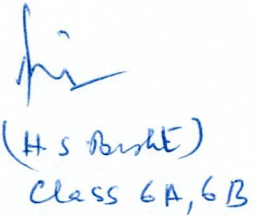 (H S Bisht)
Class 6A, 6B